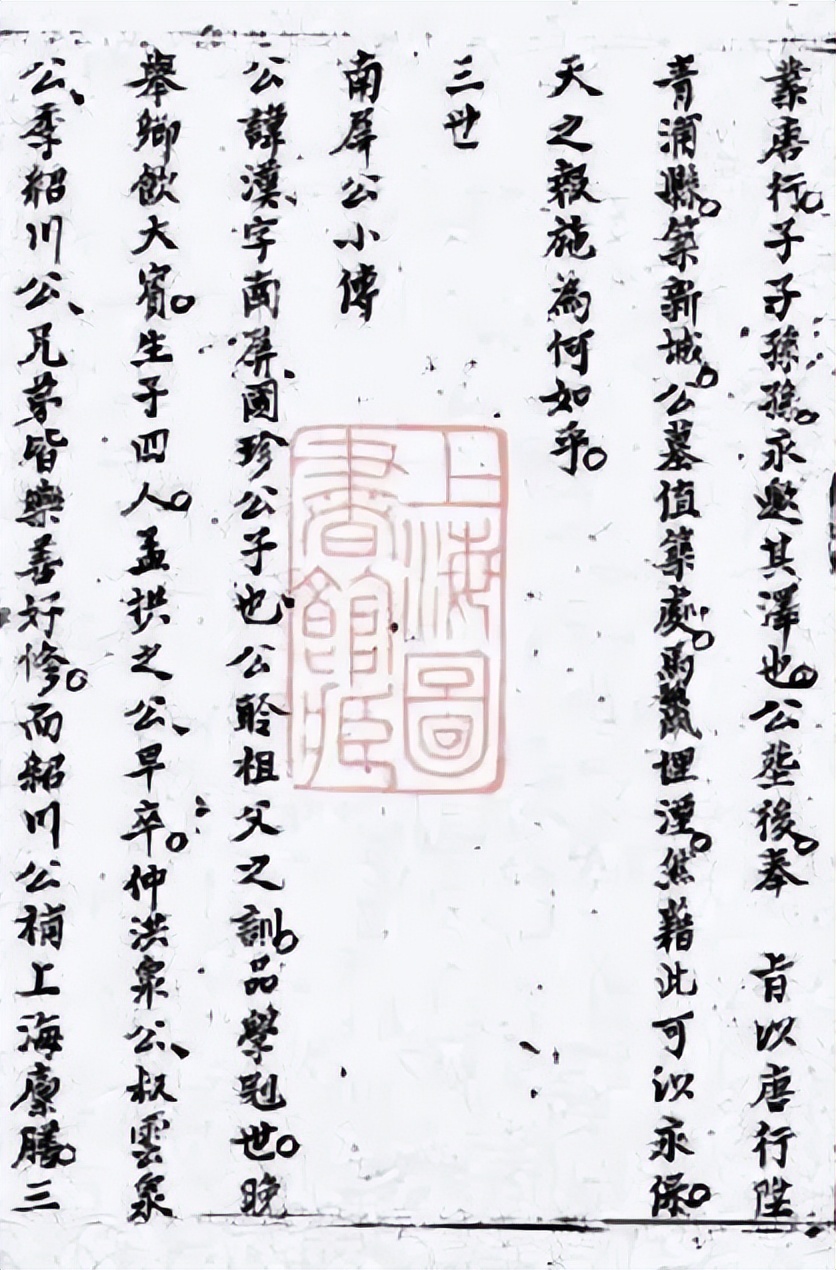 業唐行。子子孫孫。永邀其澤也。公塟後。奉　旨以唐行陞
青浦縣。築新城。公墓值築處。馬鬣埋湮。然藉此可以永保。
天之報施為何如乎。
三世
南屏公小傳
公諱漢、字南屏、國珍公子也、公聆祖父之訓。品學冠世。晚
舉鄉飲大賓。生子四人。孟拱之公、早卒。仲洪泉公、叔雲泉
公、季紹川公、兄弟皆樂善好修。而紹川公補上海廩膳。三
上海圖
書館藏